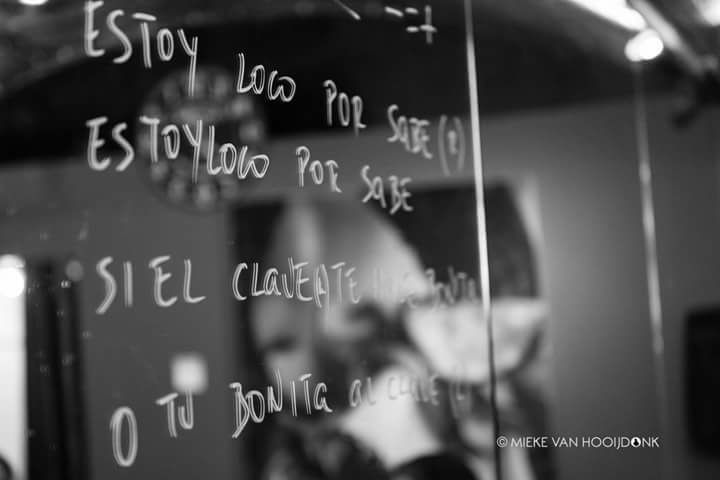 ESTOY LOCO POR SABE(R)
ESTOY LOCO POR SABE
SI EL CLAVERTE
O TU BONITA AL CLAVE
© MIEKE VAN HOOIJDONK